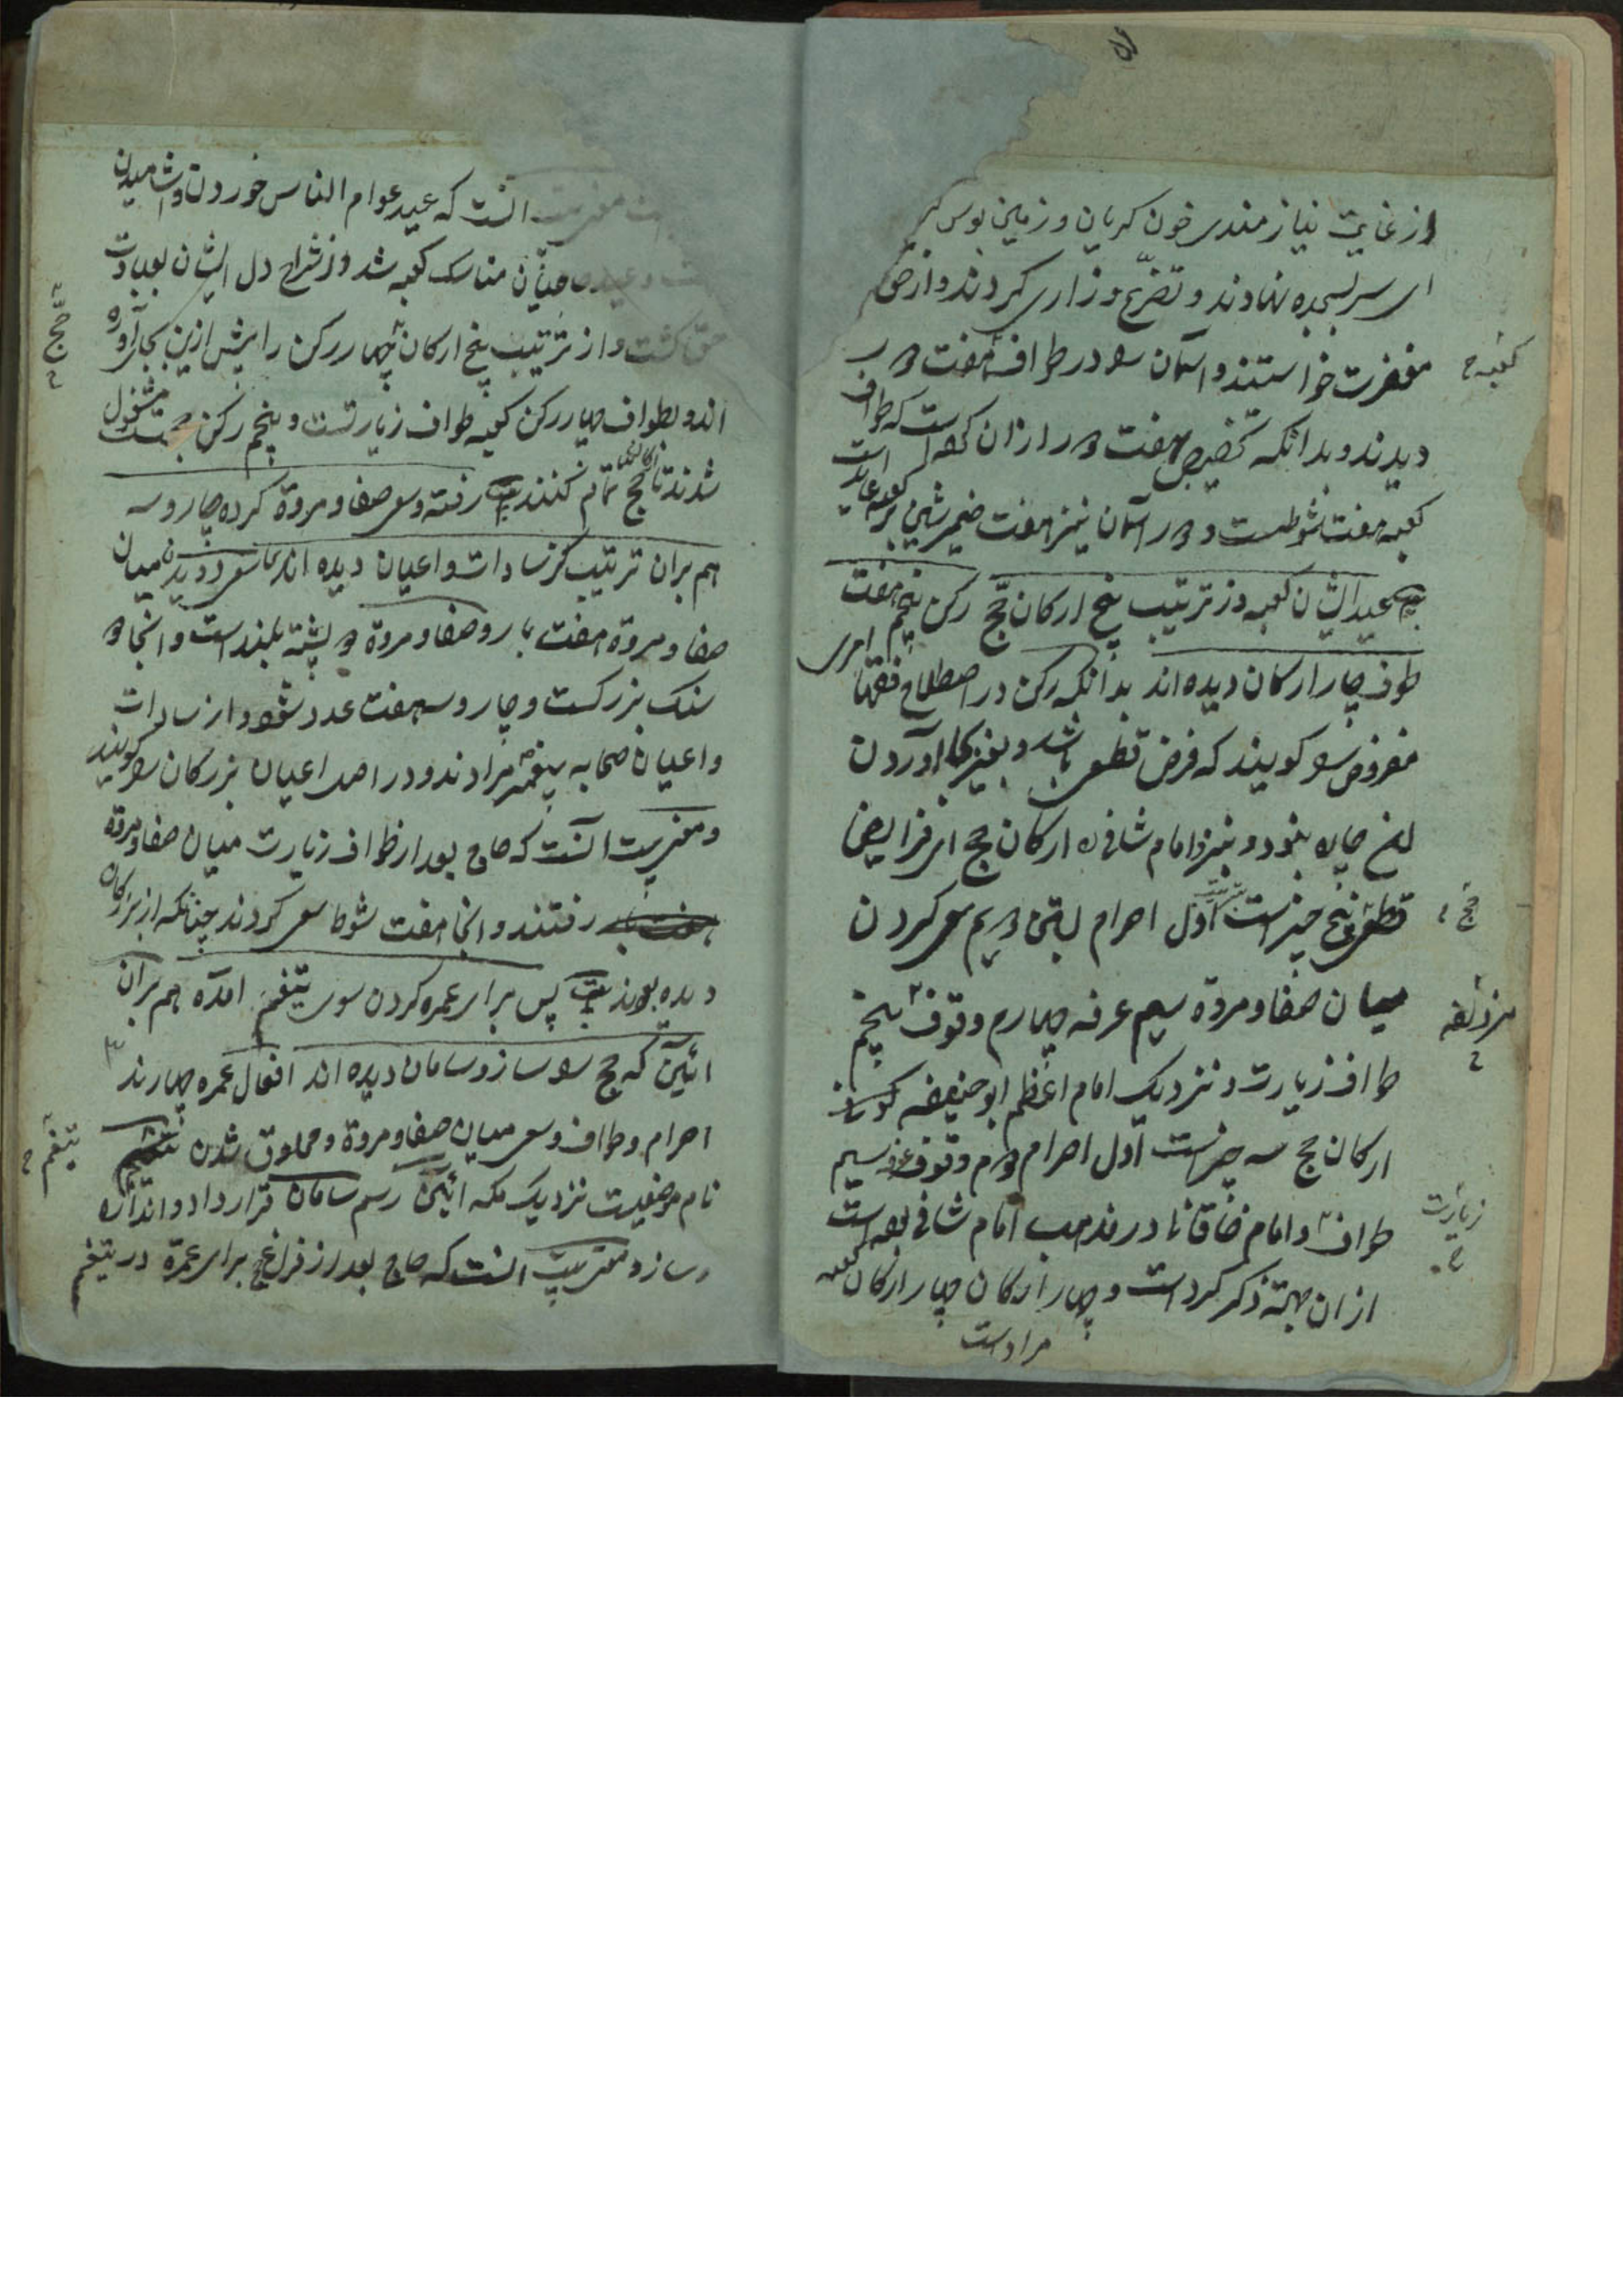 از غایت نیازمندی خون کریان و زمین بوس
سر بسجده نهادند و تضرّع و زاری کردند و از حق
مغفرت خواستند و آسمان را در طواف هفت در
کعبه ح
دیدند و بدانکه تخصیص هفت در از آن است که طواف
کعبه هفت شوطست و در آسمان نیز هفت ضمیر شین بر کعبه عاید است
عید ایشان کعبه وز ترتیب پنج ارکان حج رکن پنجم هفت
طوف چار ارکان دیده اند بدانکه رکن در اصطلاح فقها امری
مفروض را کویند که فرض قطعی باشد و بغیر بجا آوردن
آن چاره نبود و نیز امام شافی ره ارکان حج از فرایض
قطعی پنج چیز است اول احرام بستن دویم سعی کردن
حج
میان صفا و مروة سیم عرفه چهارم وقوف پنجم
مزدلفه ح
طواف زیارت و نزدیک امام اعظم ابو حنیفه کوفی
ارکان حج سه چیز است اول احرام دوم وقوف عرفه سیم
طواف و امام خاقانی در مذهب امام شافی بوده است
زیارت ح
از ان جهته ذکر کرد است و چهار ارکان چهار ارکان کعبه
مراد است
آنست که عید عوام الناس خوردن و آشامیدن
و عید حاجیان مناسک کعبه شد وز شرح دل ایشان بعبادت
حق کشت و از ترتیب پنج ارکان چهار رکن را پیش ازین بجا آورده
حج ح
اند و بطواف چهار رکن کعبه طواف زیارتست و پنجم رکن حجست مشغول
شدند تا حج تمام کنند بیت رفته و سعی صفا و مروة کرده چار و سه
هم بران ترتیب کز سادات و اعیان دیده اند سعی دویدن میان
صفا و مروة هفت بار و صفا و مروة دو پشته بلند است و آنجا دو
سنک بزرکست و چار و سه هفت عدد شود و از سادات
و اعیان صحابه پیغمبر مرادند و در اصل اعیان بزرکان را کویند
و مغز بیت آنست که حاج بعد از طواف زیارت میان صفا و مروة
رفتند و آنجا هفت شوط سعی کردند چنانکه از بزرکان
دیده بودند بیت پس برای عمره کردن سوی تنعیم آمده هم بران
آئین که حج را ساز و سامان دیده اند افعال عمره چهارند
احرام و طواف و سعی میان صفا و مروة و محلوق شدن
تنعیم ح
نام موضعیست نزدیک مکه آئین رسم سامان قرار داد و اندازه
و ساز و مغز بیت آنست که حاج بعد از فراغ حج برای عمرة در تنعیم